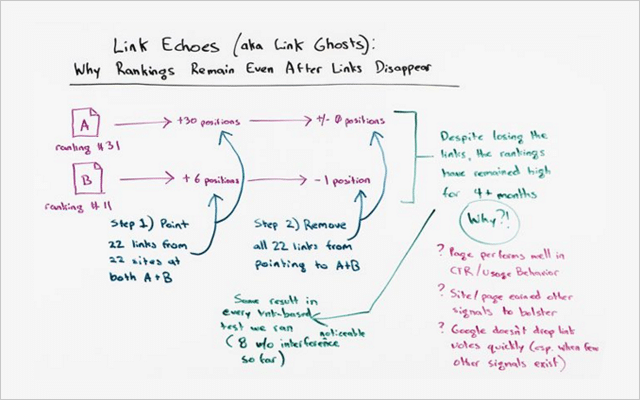 Link Echoes (aka Link Ghosts):
Why Rankings Remain Even After Links Disappear
A
+30 positions
+/- 0 positions
ranking #31
B
+6 positions
-1 position
ranking #11
Step 1) Point
22 links from
22 sites at
both A+B
Step 2) Remove
all 22 links from
pointing to A+B
Despite losing the
links, the rankings
have remained high
for 4+ months
Why?!
? Page performs well in
CTR/Usage Behavior
? Site/page earned other
signals to bolster
? Google doesn't drop link
votes quickly (esp. when few
other signals exist)
Same result in
every link-based
test we ran
noticeable
(8 w/o interference
so far)